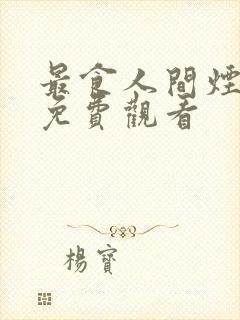 最食人間煙
免費觀看
楊寶